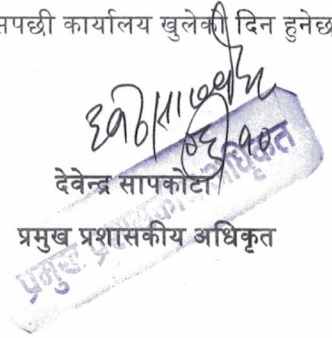 सपछी कार्यालय खुलेको दिन हुनेछ
देवेन्द्र सापकोटा
प्रमुख प्रशासकीय अधिकृत
प्रमुख प्रशासकीय अधिकृत